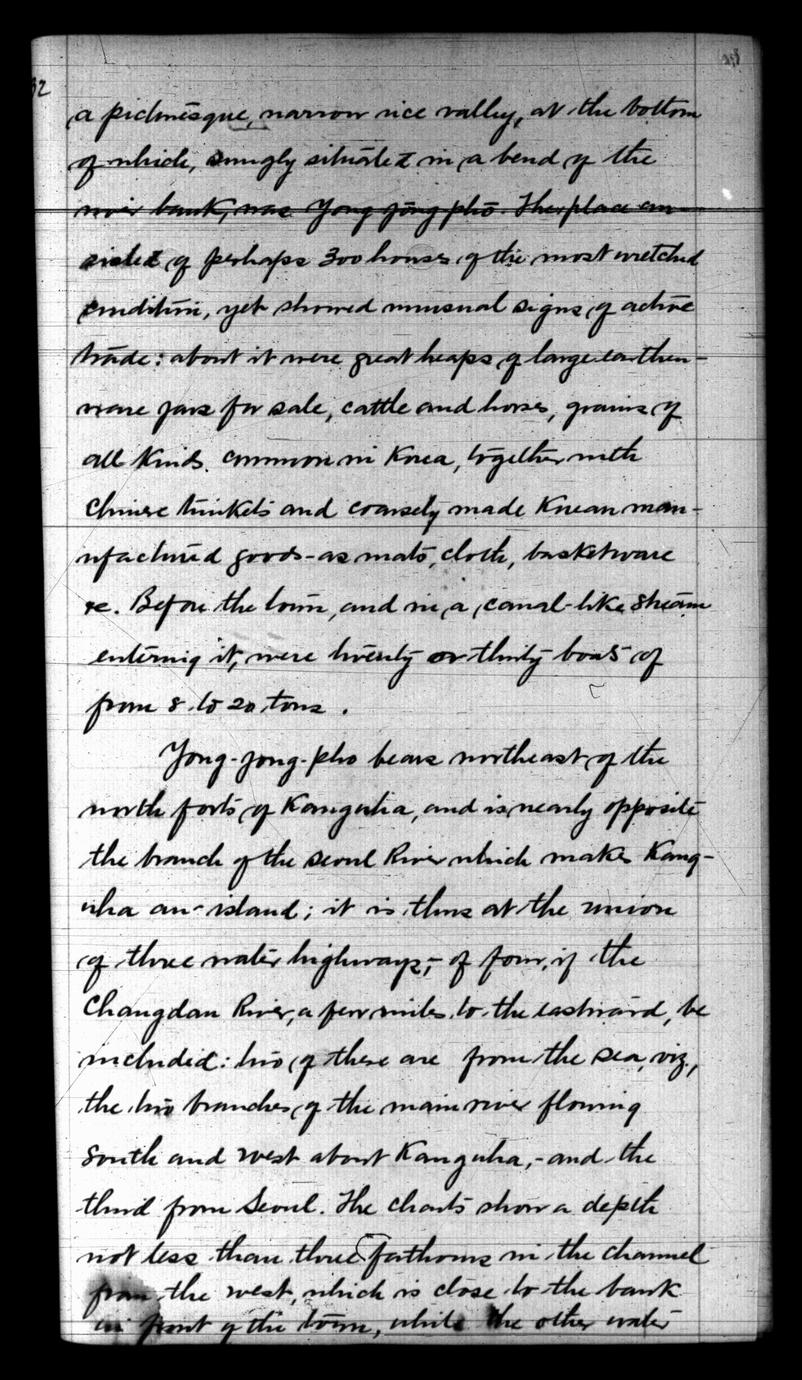 32
a picturesque, narrow rice valley, at the bottom
of which, snugly situated in a bend of the
river bank, was Yong jong pho. The place con-
sisted of perhaps 300 houses of the most wretched
condition, yet showed unusual signs of active
trade: about it were great heaps of large earthen-
ware jars for sale, cattle and horses, grains of
all kinds common in Korea, together with
Chinese trinkets and coarsely made Korean man-
ufactured goods - as mats, cloth, basketware
&c. Before the town, and in a canal-like stream
entering it, were twenty or thirty boats of
from 8 to 20 tons.
Yong-jong-pho bears northeast of the
north forts of Kanguha, and is nearly opposite
the branch of the Seoul River which makes Kang-
uha an island; it is thus at the union
of three water highways, - of four, if the
Changdan River, a few miles to the eastward, be
included: two of these are from the sea, viz,
the two branches of the main river flowing
south and west about Kanguha, - and the
third from Seoul. The charts show a depth
not less than three fathoms in the channel
from the west, which is close to the bank
in front of the town, while the other water